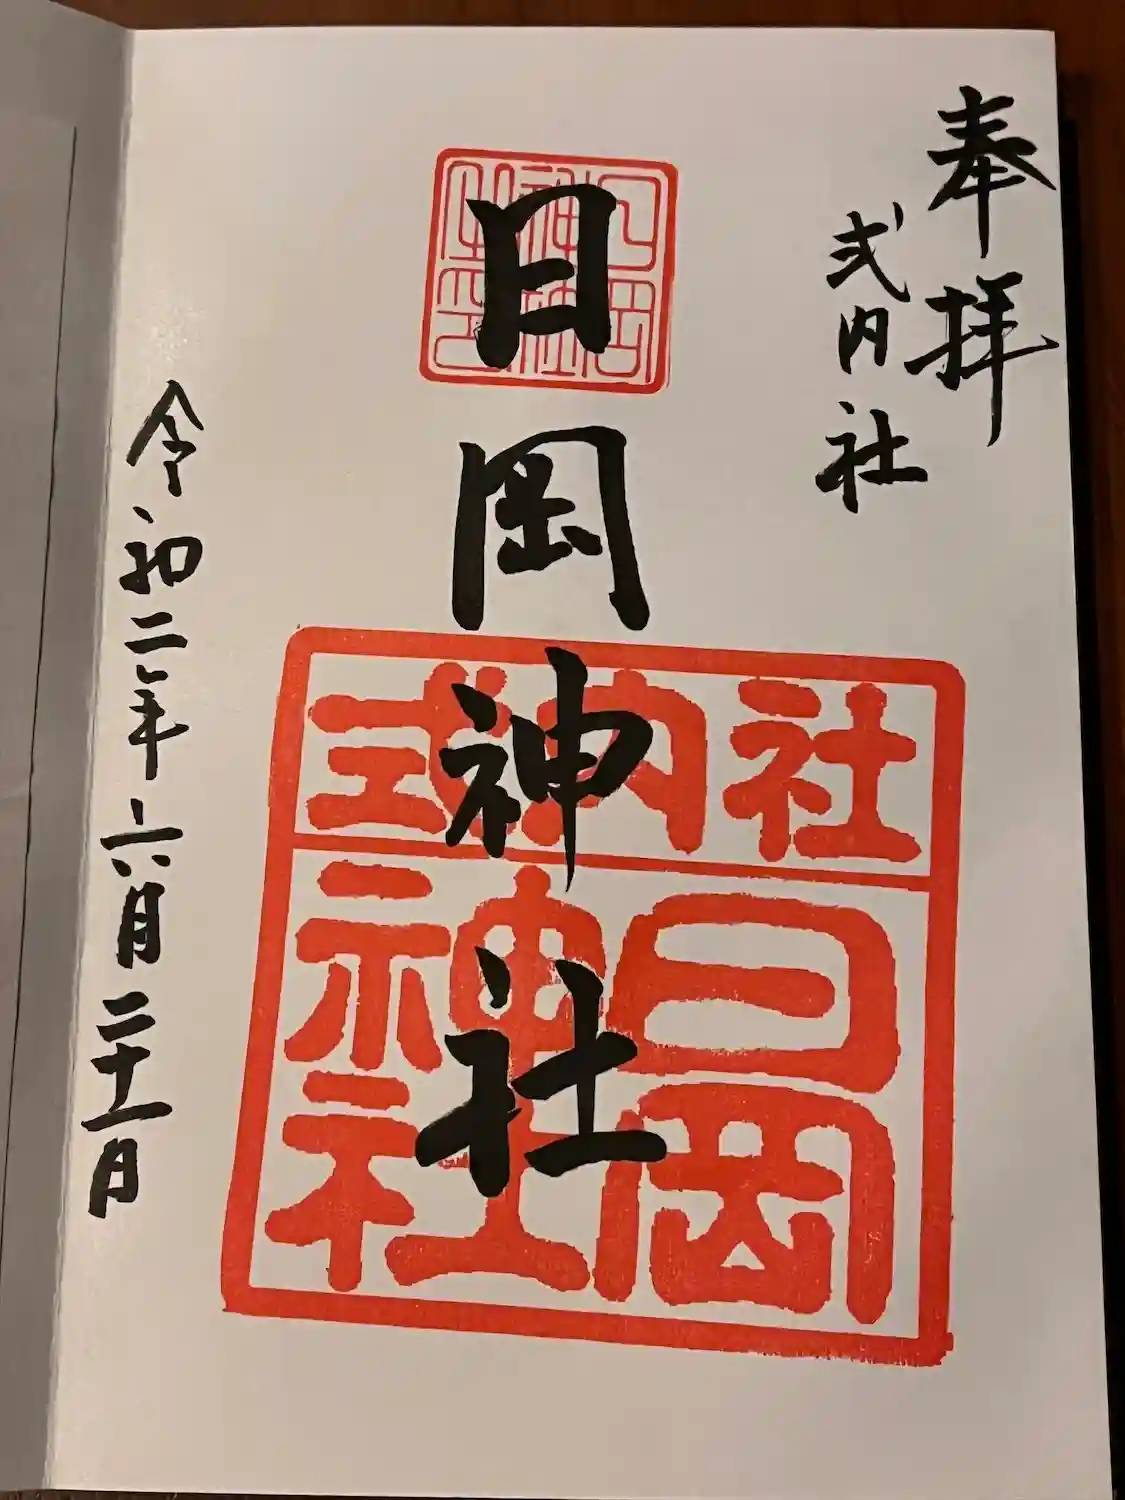 奉拝
式内社
日岡神社
令和二年六月二十一日
式内社
日岡
神社